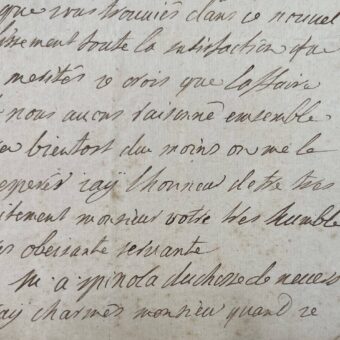 que vous trouviés dans ce nouvel
lissement toute la satisfaction que
merités je crois que laffaire
nous auons raisonné ensemble
bientost du moins on me le
esperer jay lhonneur detre tres
itement monsieur votre tres humble
es obeissante servante
m a spinola duchesse de nevers
jay charmés monsieur quand je